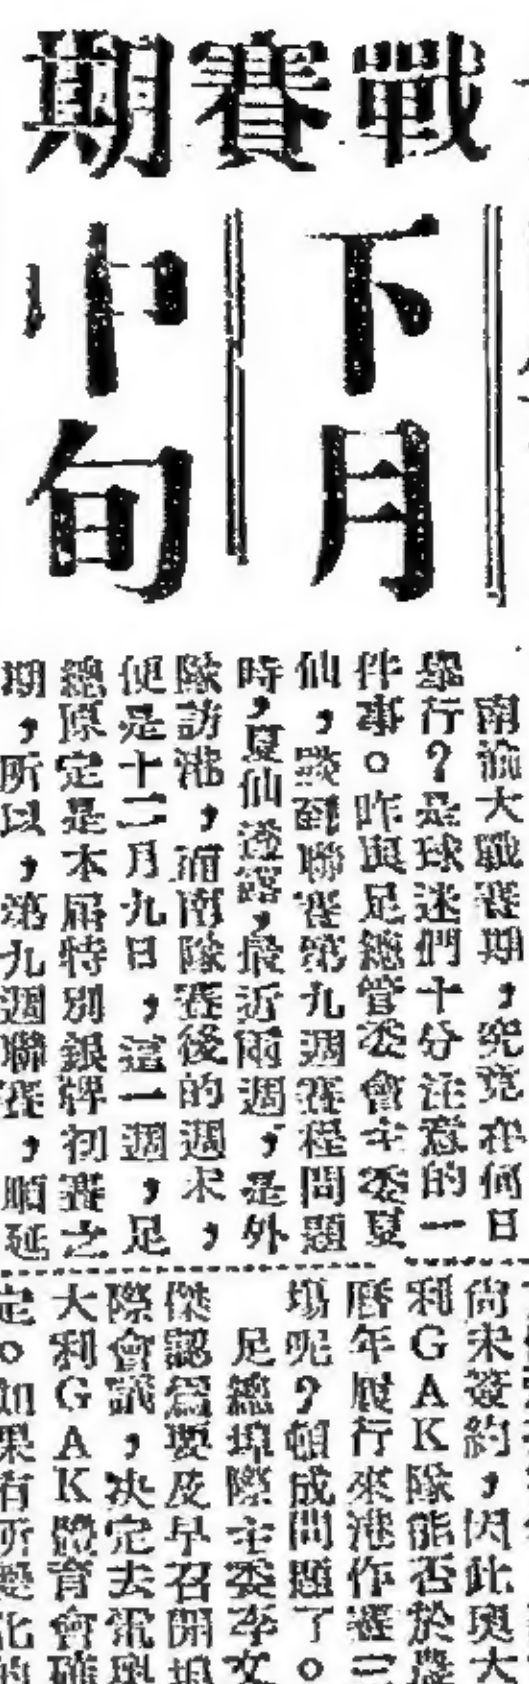 戰賽期
下月
中旬
南渝大戰賽期，究竟在何日
舉行？是球迷們十分注意的一
件事。昨與足總管委會主委夏
仙，談到聯賽第九週賽程問題
時，夏仙透露，最近兩週，是外
隊訪港，而南隊賽後的週末，
便是十二月九日，這一週，足
總原定是本屆特別銀牌初賽之
期，所以，第九週聯賽，順延
尙未簽約，因此奧大
利GAK隊能否於農
曆年履行來港作賽三
場呢？頓成問題了。
足總埠際主委李文
傑認爲要及早召開埠
際會議，決定去電奧
大利GAK體育會確
定。如果有所變化的